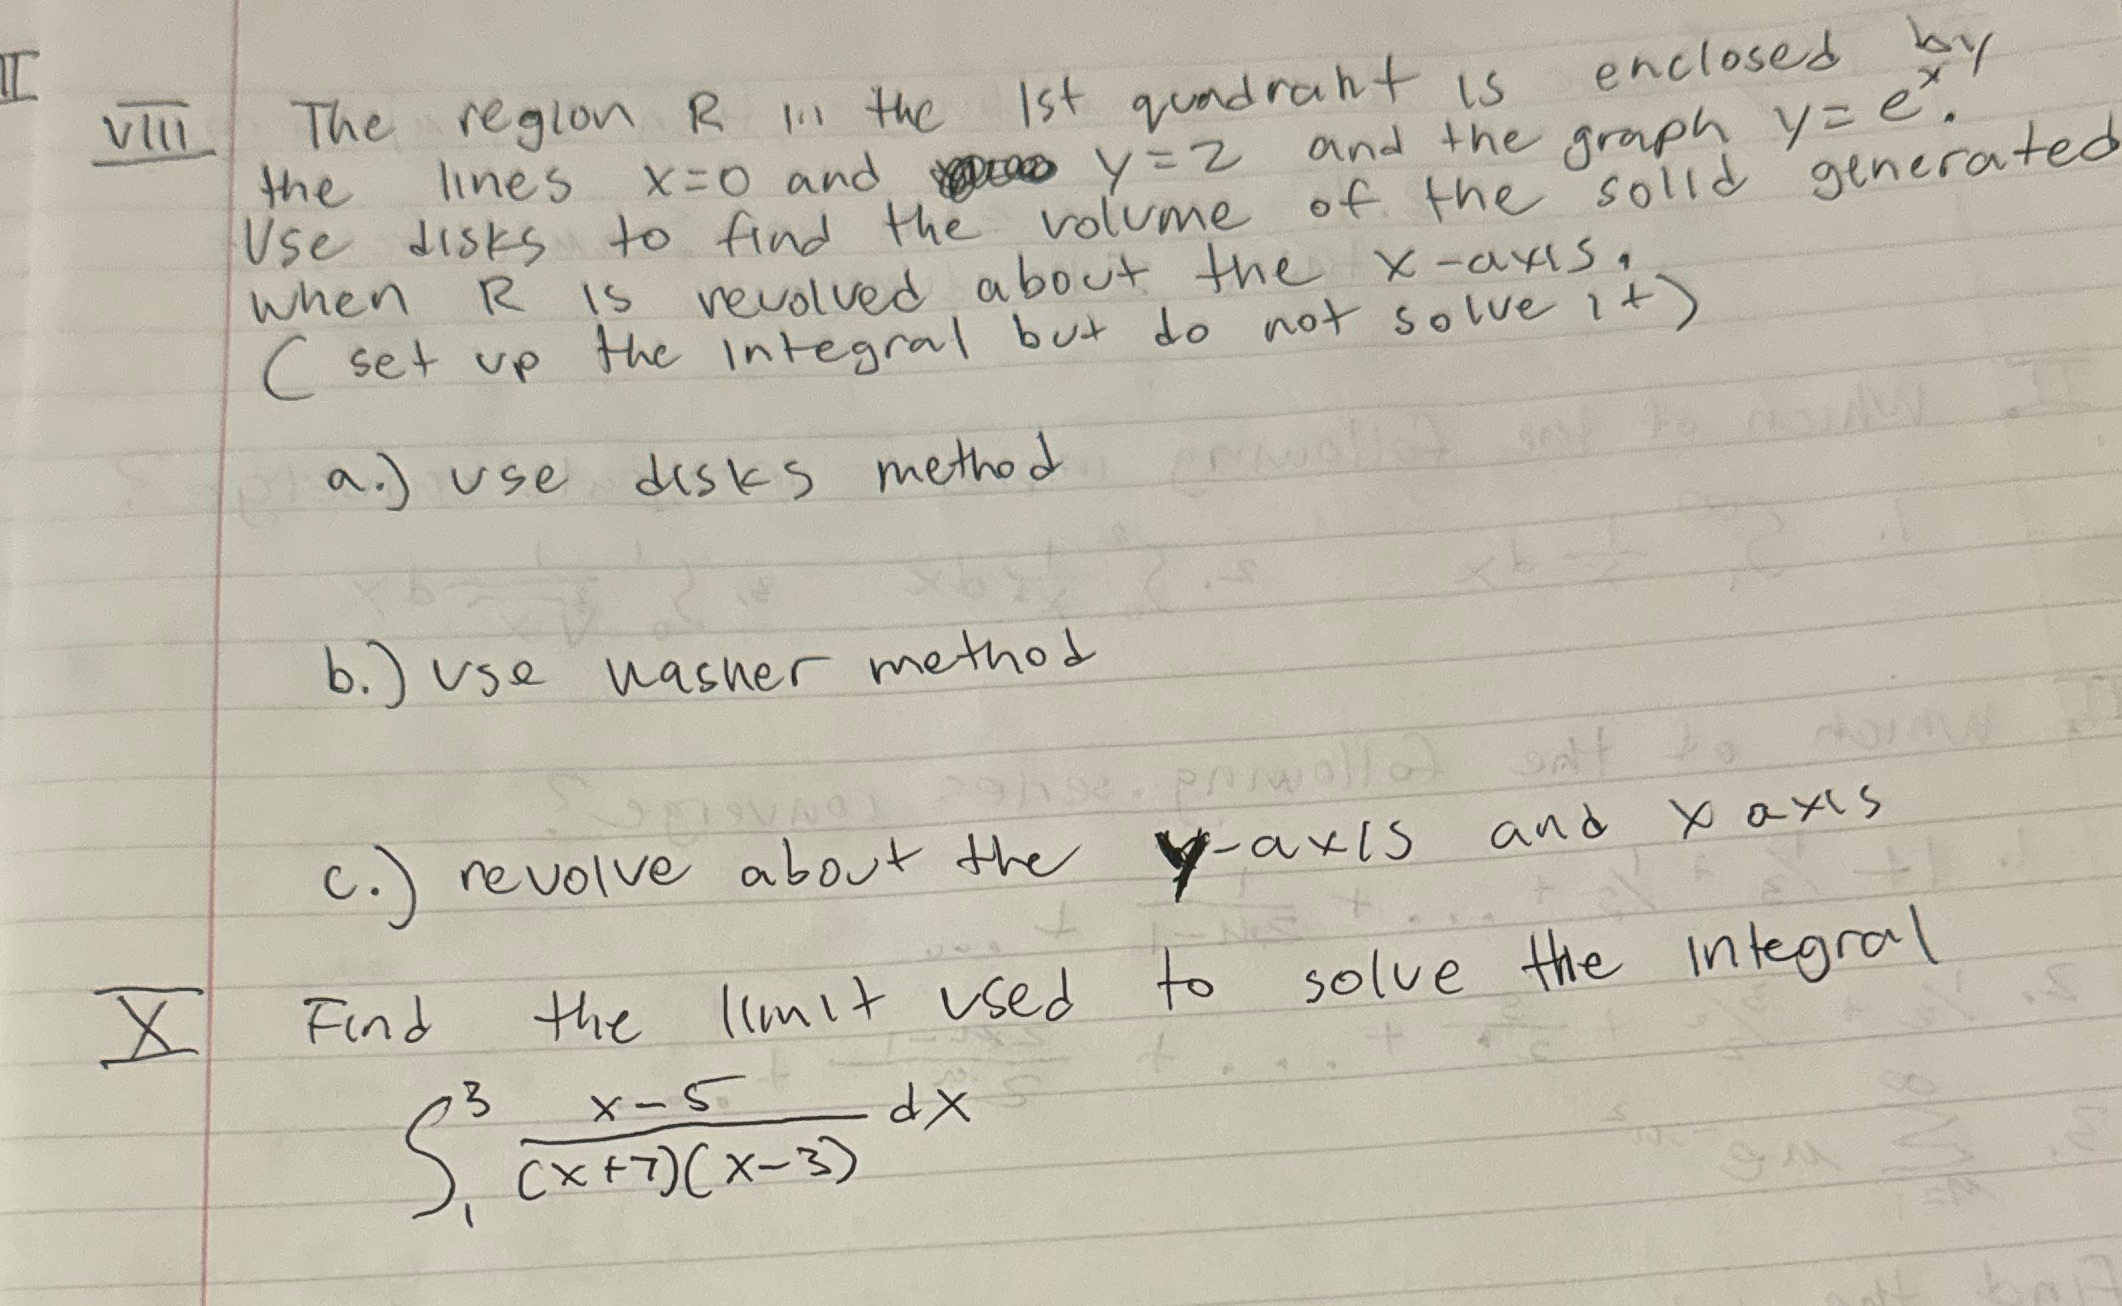 II
VIII The region R in the 1st quadrant is enclosed by
the lines x=0 and y=2 and the graph y=e^x.
Use disks to find the volume of the solid generated
when R is revolved about the x-axis.
( set up the integral but do not solve it)
a.) use disks method
b.) use washer method
c.) revolve about the y-axis and x axis
X Find the limit used to solve the integral
∫₁³ (x-5)/((x+7)(x-3)) dx